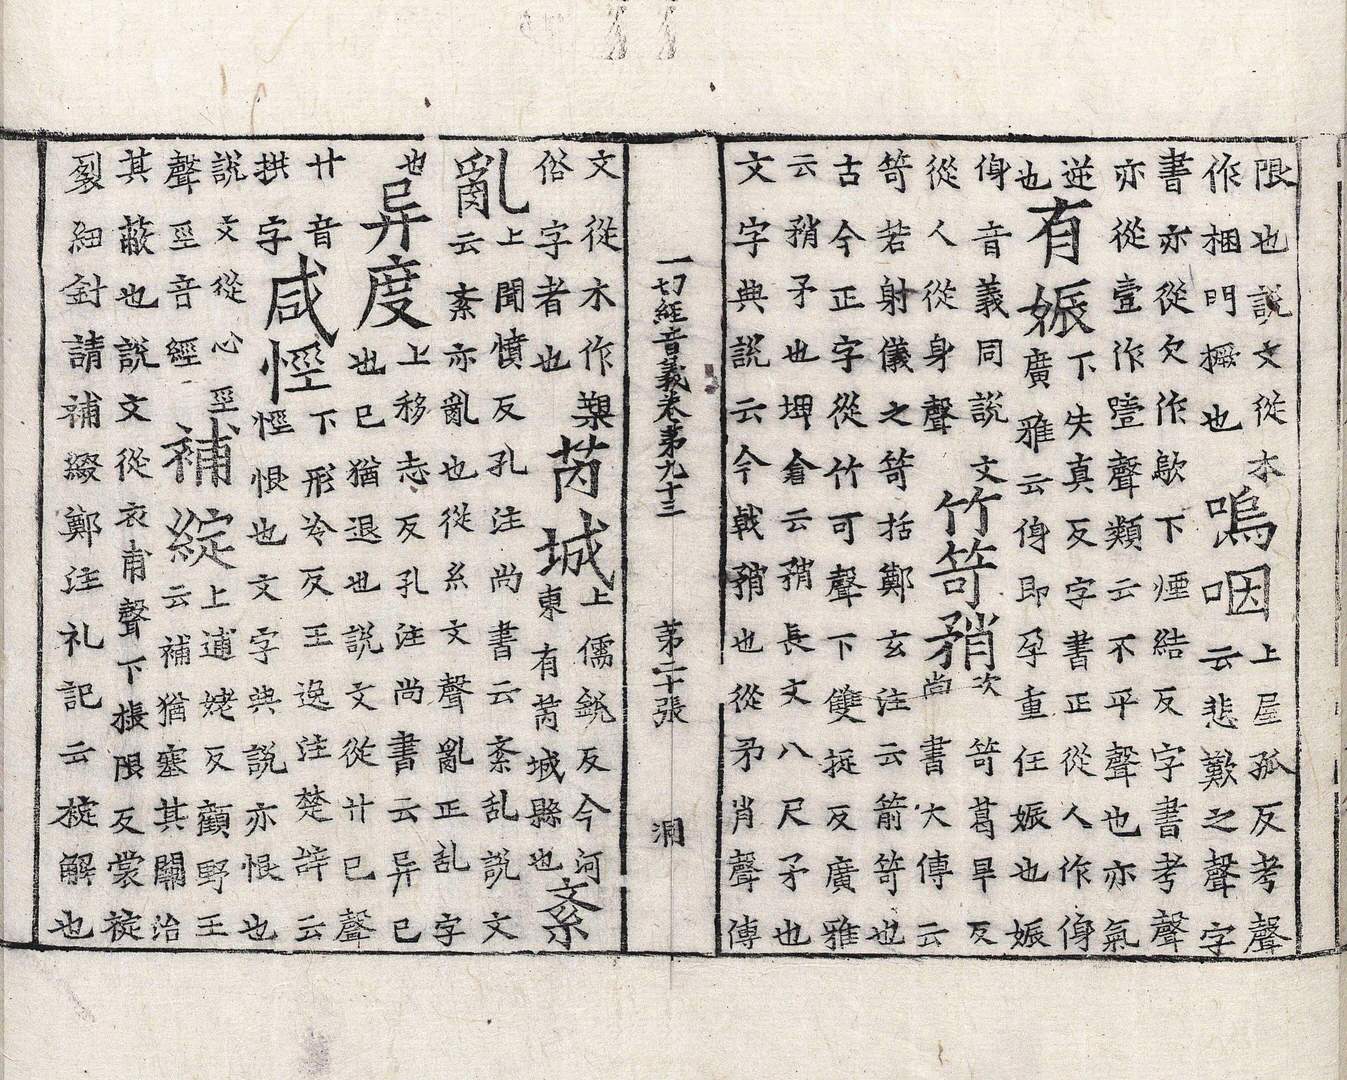 限也説文從木
作梱門橛也
嗚咽
上屋孤反考聲
云悲歎之聲字
書亦從欠作歍下煙結反字書考聲
亦從壹作噎聲類云不平聲也亦氣
逆
也
有娠
下失真反字書正從人作侲
廣雅云侲即孕重任娠也娠
侲音義同説文
從人從身聲
竹笴矟
次笴葛旱反
尚書大傳云
笴若射儀之笴括鄭玄注云箭笴也
古今正字從竹可聲下雙捉反廣雅
云矟矛也埤倉云矟長丈八尺矛也
文字典説云今戟矟也從矛肖聲傳
一切經音義卷第九十三 第二十張 洞
文從木作槼
俗字者也
芮城
上儒銳反今河
東有芮城縣也
紊
亂
上聞憤反孔注尚書云紊乱説文
云紊亦亂也從糸文聲亂正乱字
也
异度
上移志反孔注尚書云异已
也已猶退也説文從廾已聲
廾音
拱字
咸悙
下形冷反王逸注楚辝云
悙恨也文字典説亦恨也
説文從心巠
聲巠音經
補綻
上逋姥反顧野王
云補猶塞其闕治
其蔽也説文從衣甫聲下掁限反裳䘺
裂紐針請補綴鄭注礼記云䘺解也